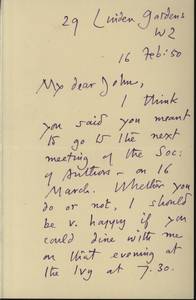 29 Linden Gardens
W2
16 Feb: 50
My dear John,
I think
you said you meant
to go to the next
meeting of the Soc.
of Authors – on 16
March. Whether you
do or not, I should
be v. happy if you
could dine with me
on that evening at
the Ivy at 7.30.